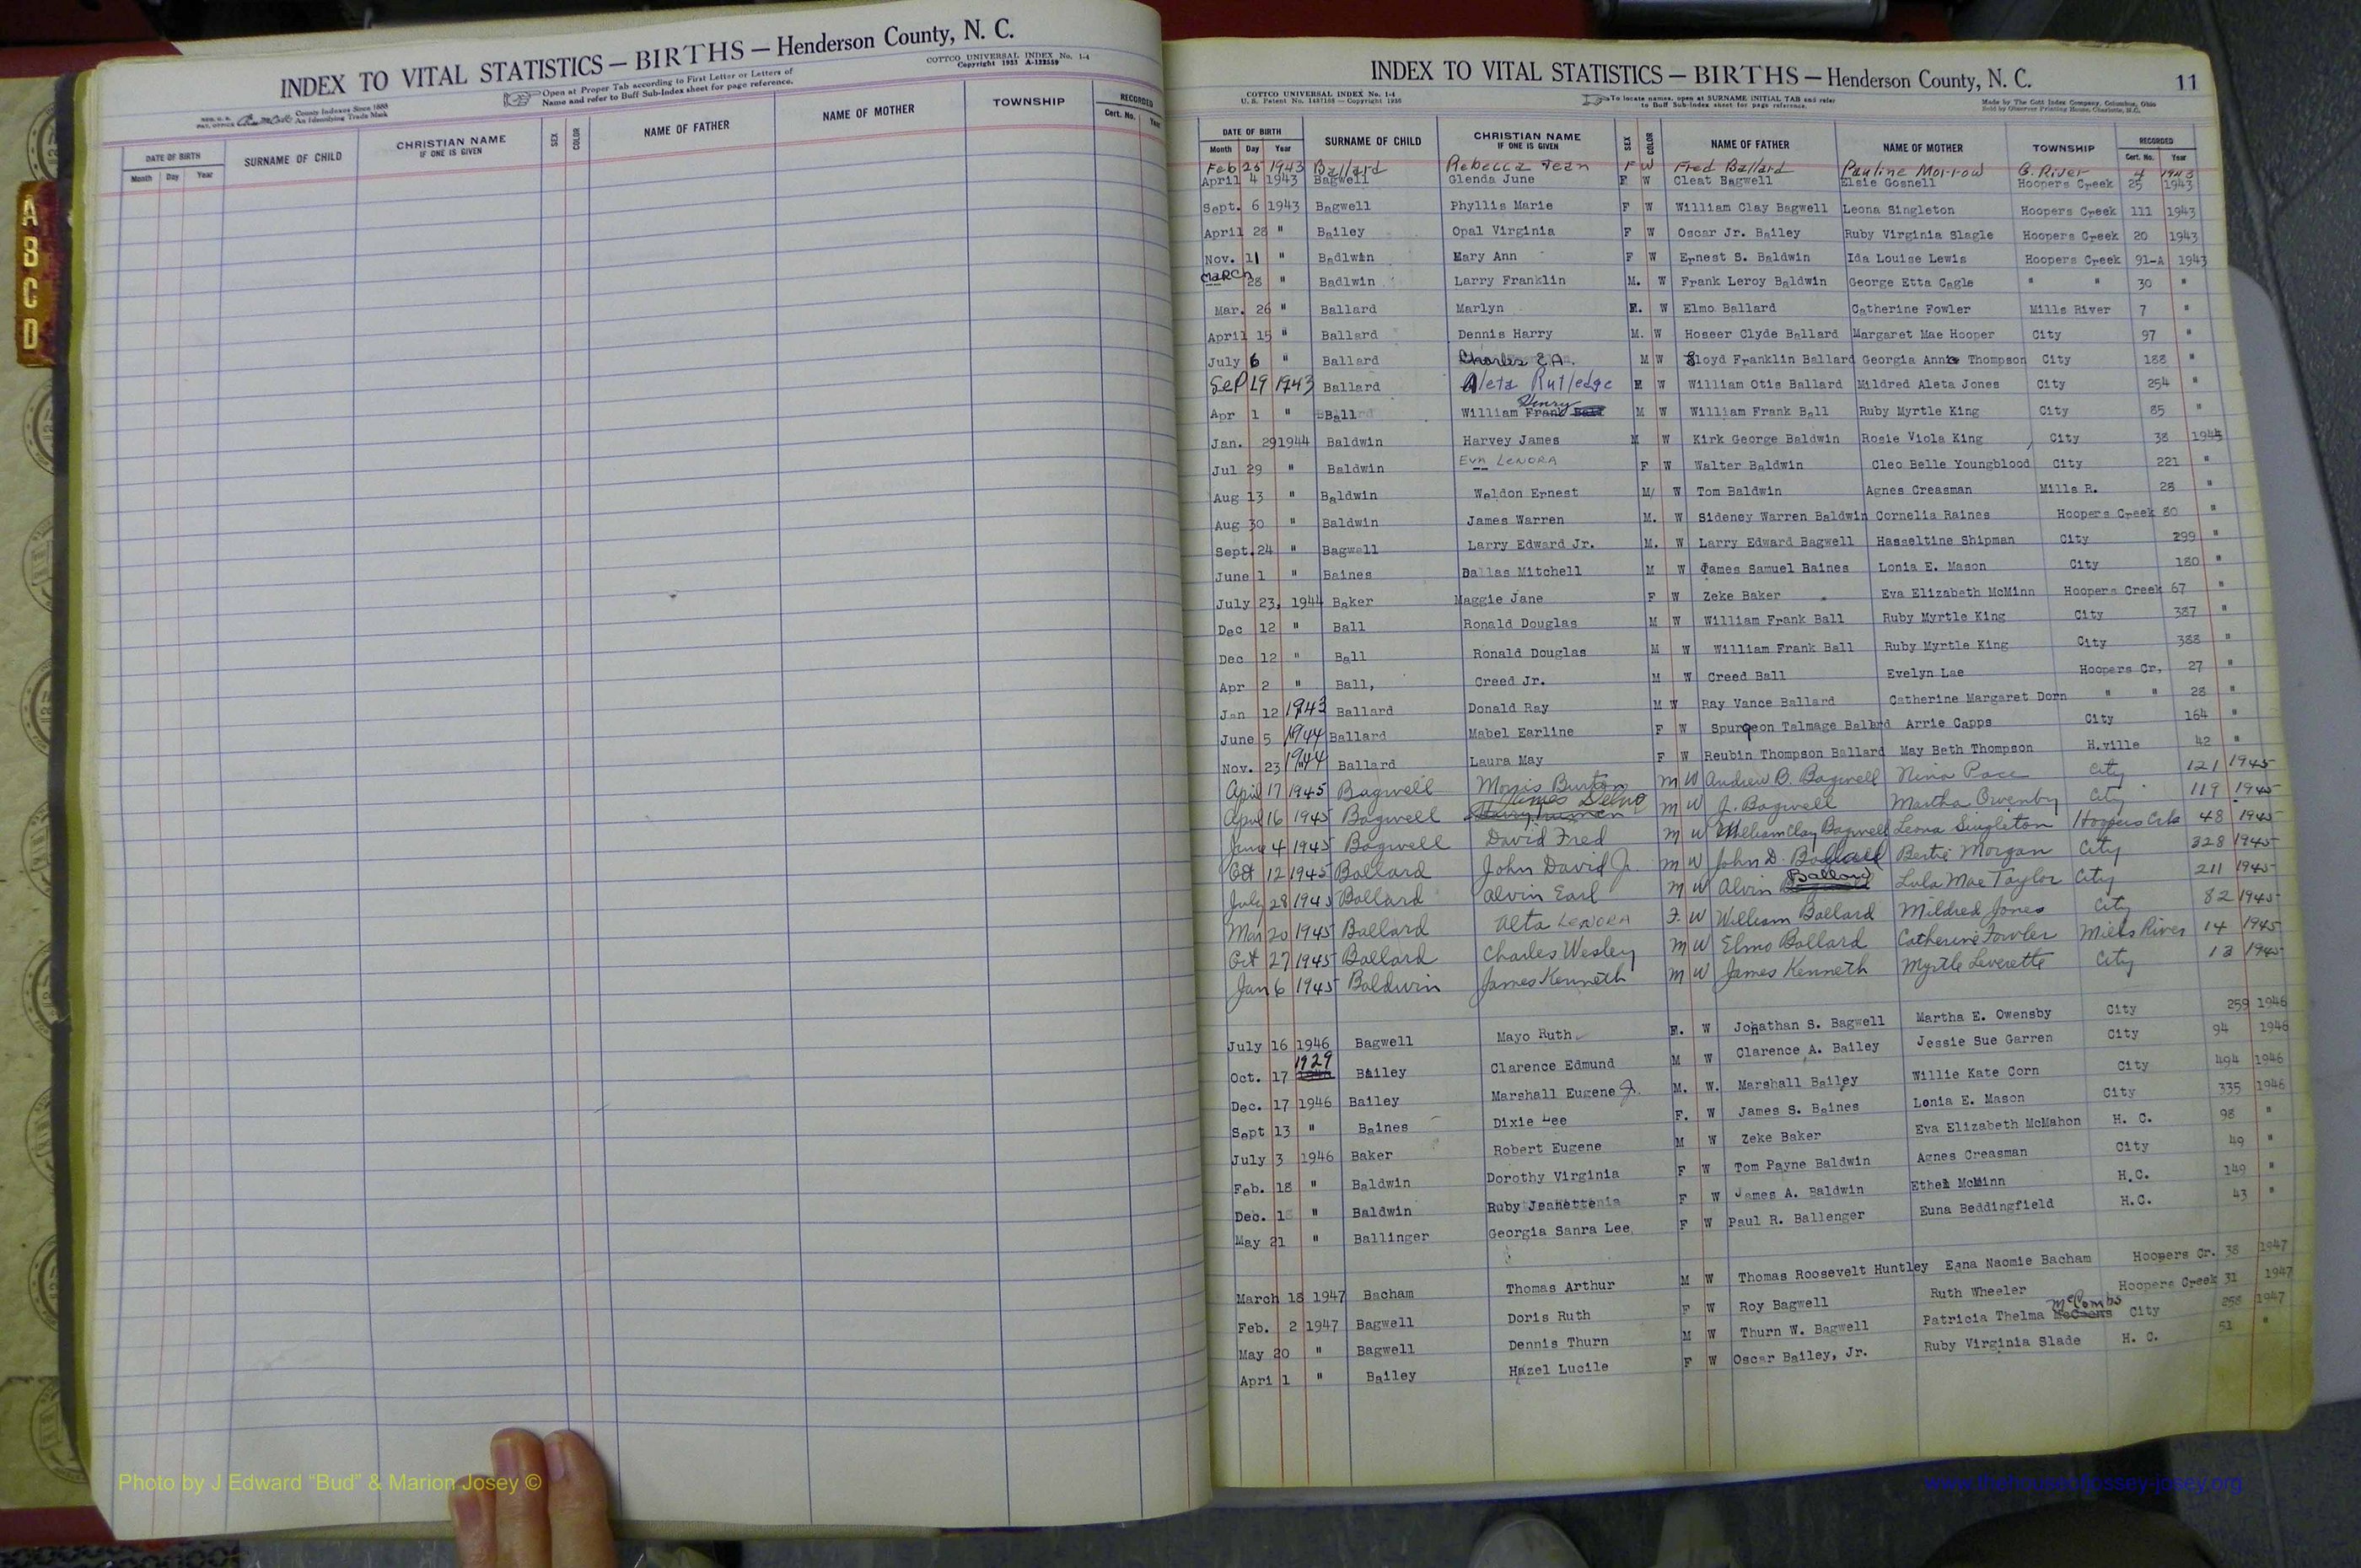 INDEX TO VITAL STATISTICS — BIRTHS — Henderson County, N. C.
COTTCO UNIVERSAL INDEX No. 1-4
Copyright 1933 A-122559
Open at Proper Tab according to First Letter or Letters of
Name and refer to Buff Sub-Index sheet for page reference.
County Indexes Since 1888
An Identifying Trade Mark
DATE OF BIRTH SURNAME OF CHILD CHRISTIAN NAME IF ONE IS GIVEN SEX COLOR NAME OF FATHER NAME OF MOTHER TOWNSHIP RECORDED
Month Day Year Cert. No. Year
A
B
C
D
INDEX TO VITAL STATISTICS — BIRTHS — Henderson County, N. C. 11
COTTCO UNIVERSAL INDEX No. 1-4
To locate names, open at SURNAME INITIAL TAB and refer
to Buff Sub-Index sheet for page reference.
Made by The Cott Index Company, Columbus, Ohio
Sold by Observer Printing House, Charlotte, N.C.
DATE OF BIRTH SURNAME OF CHILD CHRISTIAN NAME IF ONE IS GIVEN SEX COLOR NAME OF FATHER NAME OF MOTHER TOWNSHIP RECORDED
Month Day Year Cert. No. Year
Feb 25 1943 Ballard Rebecca Jean F W Fred Ballard Pauline Morrow G. River 4 1943
April 4 1943 Bagwell Glenda June F W Cleat Bagwell Elsie Gosnell Hoopers Creek 25 1943
Sept. 6 1943 Bagwell Phyllis Marie F W William Clay Bagwell Leona Singleton Hoopers Creek 111 1943
April 28 " Bailey Opal Virginia F W Oscar Jr. Bailey Ruby Virginia Slagle Hoopers Creek 20 1943
Nov. 11 " Badlwin Mary Ann F W Ernest S. Baldwin Ida Louise Lewis Hoopers Creek 91-A 1943
March 28 " Badlwin Larry Franklin M. W Frank Leroy Baldwin George Etta Cagle " " 30 "
Mar. 26 " Ballard Marlyn W Elmo Ballard Catherine Fowler Mills River 7 "
April 15 " Ballard Dennis Harry M. W Hoseer Clyde Ballard Margaret Mae Hooper City 97 "
July 6 " Ballard Charles E.A. M W Lloyd Franklin Ballard Georgia Anne Thompson City 188 "
Sep 19 1943 Ballard Aleta Rutledge W William Otis Ballard Mildred Aleta Jones City 254 "
Apr 1 " Ball William Frank Henry M W William Frank Ball Ruby Myrtle King City 85 "
Jan. 29 1944 Baldwin Harvey James M W Kirk George Baldwin Rosie Viola King City 38 1944
Jul 29 " Baldwin Eva LeNORA F W Walter Baldwin Cleo Belle Youngblood City 221 "
Aug 13 " Baldwin Weldon Ernest M/ W Tom Baldwin Agnes Creasman Mills R. 28 "
Aug 30 " Baldwin James Warren M. W Sideney Warren Baldwin Cornelia Raines Hoopers Creek 80 "
Sept. 24 " Bagwell Larry Edward Jr. M. W Larry Edward Bagwell Hasseltine Shipman City 299 "
June 1 " Baines Dallas Mitchell M W James Samuel Baines Lonia E. Mason City 180 "
July 23, 1944 Baker Maggie Jane F W Zeke Baker Eva Elizabeth McMinn Hoopers Creek 67 "
Dec 12 " Ball Ronald Douglas M W William Frank Ball Ruby Myrtle King City 387 "
Dec 12 " Ball Ronald Douglas M W William Frank Ball Ruby Myrtle King City 388 "
Apr 2 " Ball, Creed Jr. M W Creed Ball Evelyn Lae Hoopers Cr, 27 "
Jan 12 1943 Ballard Donald Ray M W Ray Vance Ballard Catherine Margaret Dorn " " 28 "
June 5 1944 Ballard Mabel Earline F W Spurgeon Talmage Ballard Arrie Capps City 164 "
Nov. 23 1944 Ballard Laura May F W Reubin Thompson Ballard May Beth Thompson H.ville 42 "
April 17 1945 Bagwell Morris Burton M W Andrew B. Bagwell Nina Pace City 121 1945
April 16 1945 Bagwell James Delno M W J. Bagwell Martha Owenby City 119 1945
June 4 1945 Bagwell David Fred M W William Clay Bagwell Leona Singleton Hoopers Crk 48 1945
Oct 12 1945 Ballard John David Jr. M W John D. Ballard Bertie Morgan City 328 1945
July 28 1945 Ballard Alvin Earl M W Alvin Ballard Lula Mae Taylor City 211 1945
Mar 20 1945 Ballard Alta LeNORA F. W William Ballard Mildred Jones City 82 1945
Oct 27 1945 Ballard Charles Wesley M W Elmo Ballard Catherine Fowler Mills River 14 1945
Jan 6 1945 Baldwin James Kenneth M W James Kenneth Myrtle Leverette City 13 1945
July 16 1946 Bagwell Mayo Ruth F. W Johathan S. Bagwell Martha E. Owensby City 259 1946
Oct. 17 1929 Bailey Clarence Edmund M W Clarence A. Bailey Jessie Sue Garren City 94 1946
Dec. 17 1946 Bailey Marshall Eugene Jr. M. W. Marshall Bailey Willie Kate Corn City 494 1946
Sept 13 " Baines Dixie Lee F. W James S. Baines Lonia E. Mason City 335 1946
July 3 1946 Baker Robert Eugene M W Zeke Baker Eva Elizabeth McMahon H. C. 98 "
Feb. 18 " Baldwin Dorothy Virginia F W Tom Payne Baldwin Agnes Creasman City 49 "
Dec. 1 " Baldwin Ruby Jeanette F W James A. Baldwin Ethel McMinn H.C. 149 "
May 21 " Ballinger Georgia Sanra Lee F W Paul R. Ballenger Euna Beddingfield H.C. 43 "
March 18 1947 Bacham Thomas Arthur M W Thomas Roosevelt Huntley Edna Naomie Bacham Hoopers Cr. 38 1947
Feb. 2 1947 Bagwell Doris Ruth F W Roy Bagwell Ruth Wheeler Hoopers Creek 31 1947
May 20 " Bagwell Dennis Thurn M W Thurn W. Bagwell Patricia Thelma McCombs City 258 1947
April 1 " Bailey Hazel Lucile F W Oscar Bailey, Jr. Ruby Virginia Slade H. C. 51 "
Photo by J Edward “Bud” & Marion Josey ©
www.thehouseofjossey-josey.org